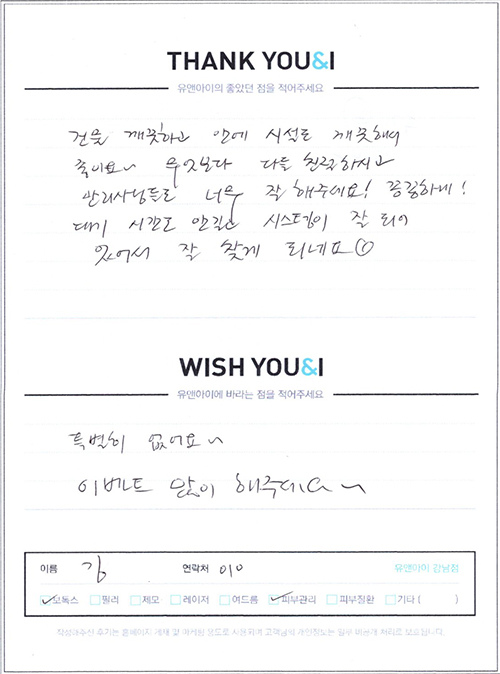 THANK YOU&I
유앤아이의 좋았던 점을 적어주세요
건물 깨끗하고 안에 시설도 깨끗해서
좋아요~ 무엇보다 다들 친절하시고
관리사님들도 너무 잘 해주세요! 꼼꼼하게!
대기 시간도 안길고 시스템이 잘 되어
있어서 잘 찾게 되네요
WISH YOU&I
유앤아이에 바라는 점을 적어주세요
특별히 없어요~
이벤트 많이 해주세요~
이름 김 연락처 010 유앤아이 강남점
보톡스 필러 제모 레이저 여드름 피부관리 피부질환 기타 ( )
작성해주신 후기는 홈페이지 게재 및 마케팅 용도로 사용되며 고객님의 개인정보는 일부 비공개 처리로 보호됩니다.